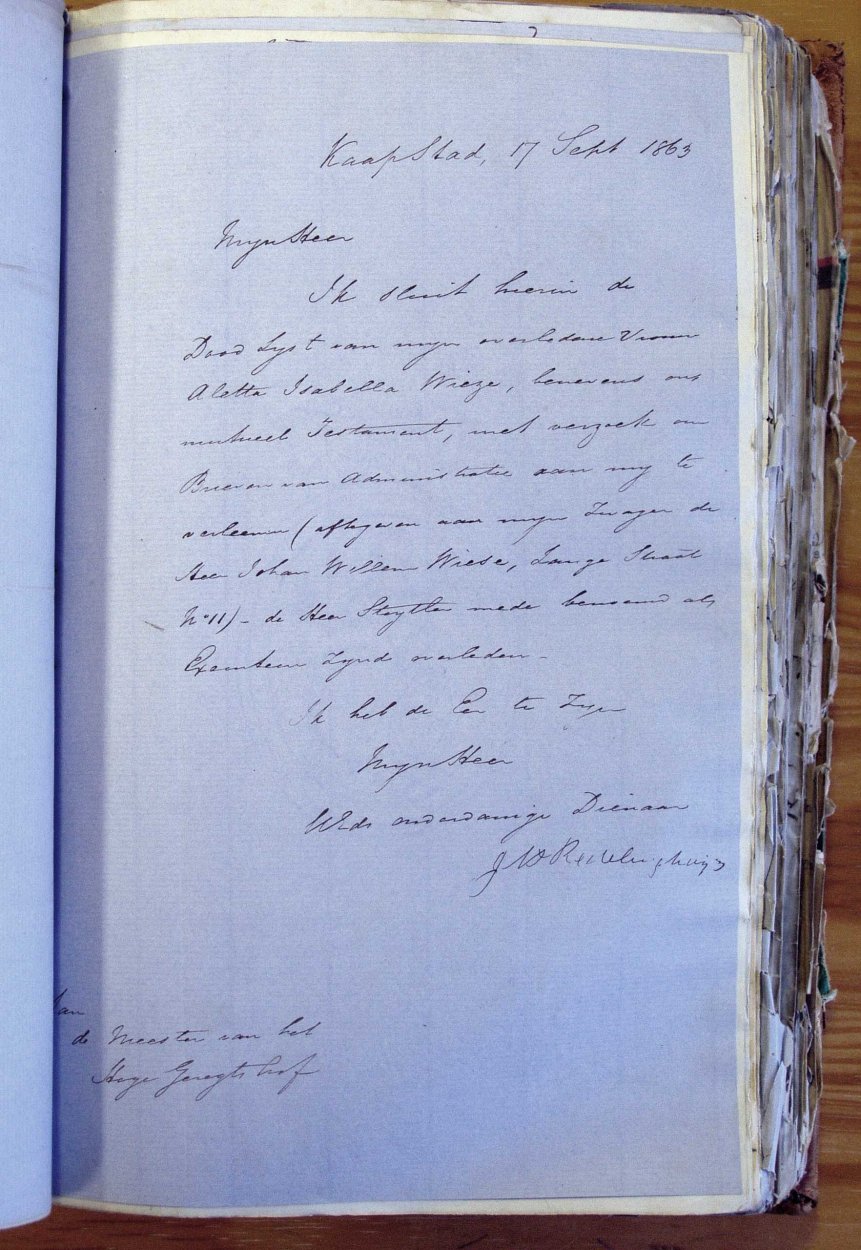 KaapStad, 17 Sept 1863
MynHeer
Ik sluit hierin de
Dood Lyst van myn overledene Vrouw
Aletta Isabella Wieze, benevens ons
mutueel Testament, met verzoek om
Brieven van Administratie aan my te
verleenen (aftegeven aan myn Zwager de
Heer Johan Willem Wiese, Lange Straat
No 11) - de Heer Steytler mede benoemd als
Executeur Zynd overleden -
Ik heb de Eer te Zyn
MynHeer
UEds onderdanige Dienaar
Redelinghuys
Aan
de Meester van het
Hoge Geregts hof